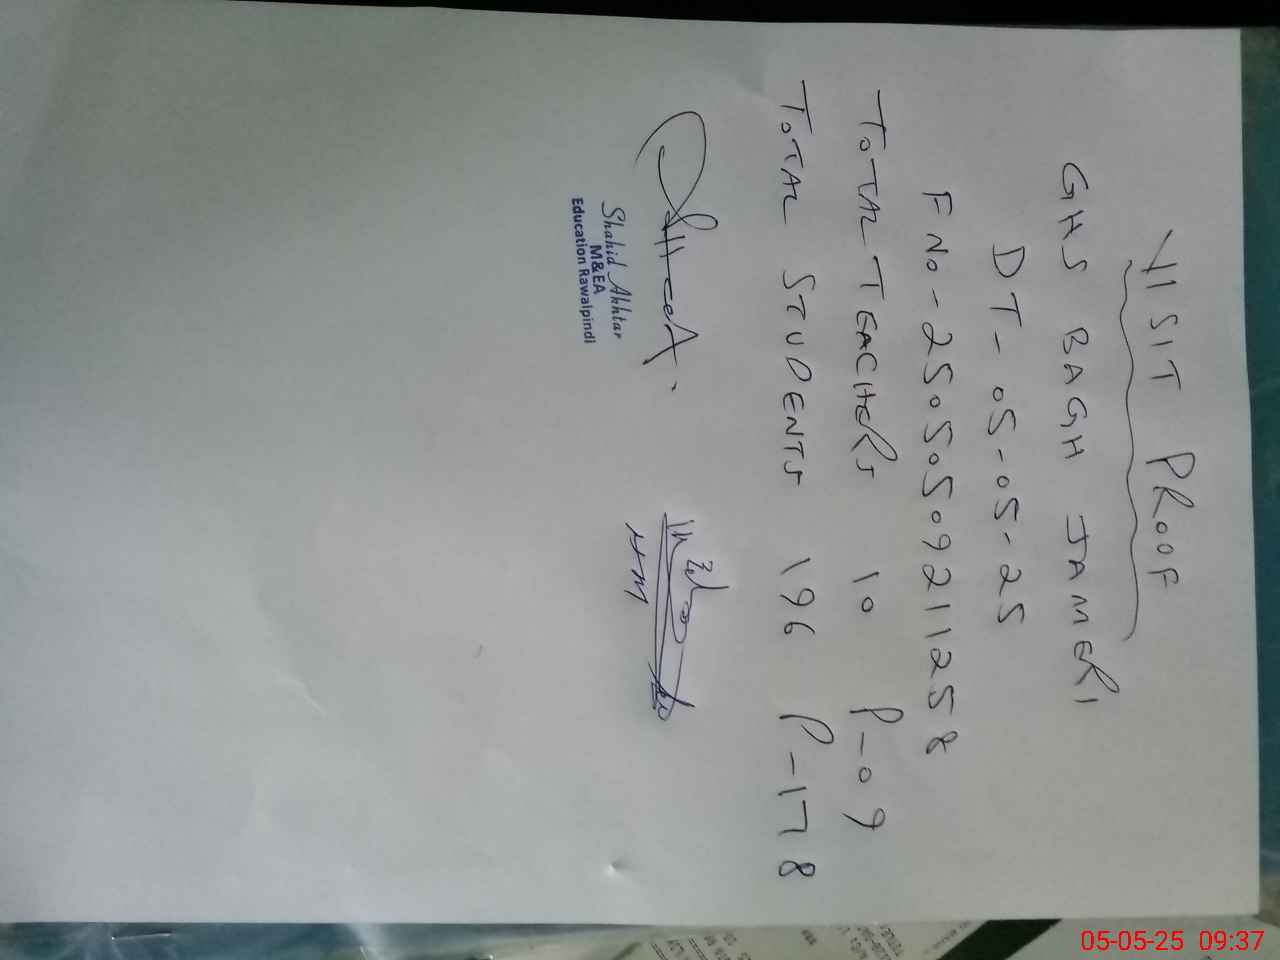 VISIT PROOF
GHS BAGH JAMERI
DT- 05-05-25
F No- 25050509211258
TOTAL TEACHERS 10 P-09
TOTAL STUDENTS 196 P-178
Shahid Akhtar
M&EA
Education Rawalpindi
HM
05-05-25 09:37